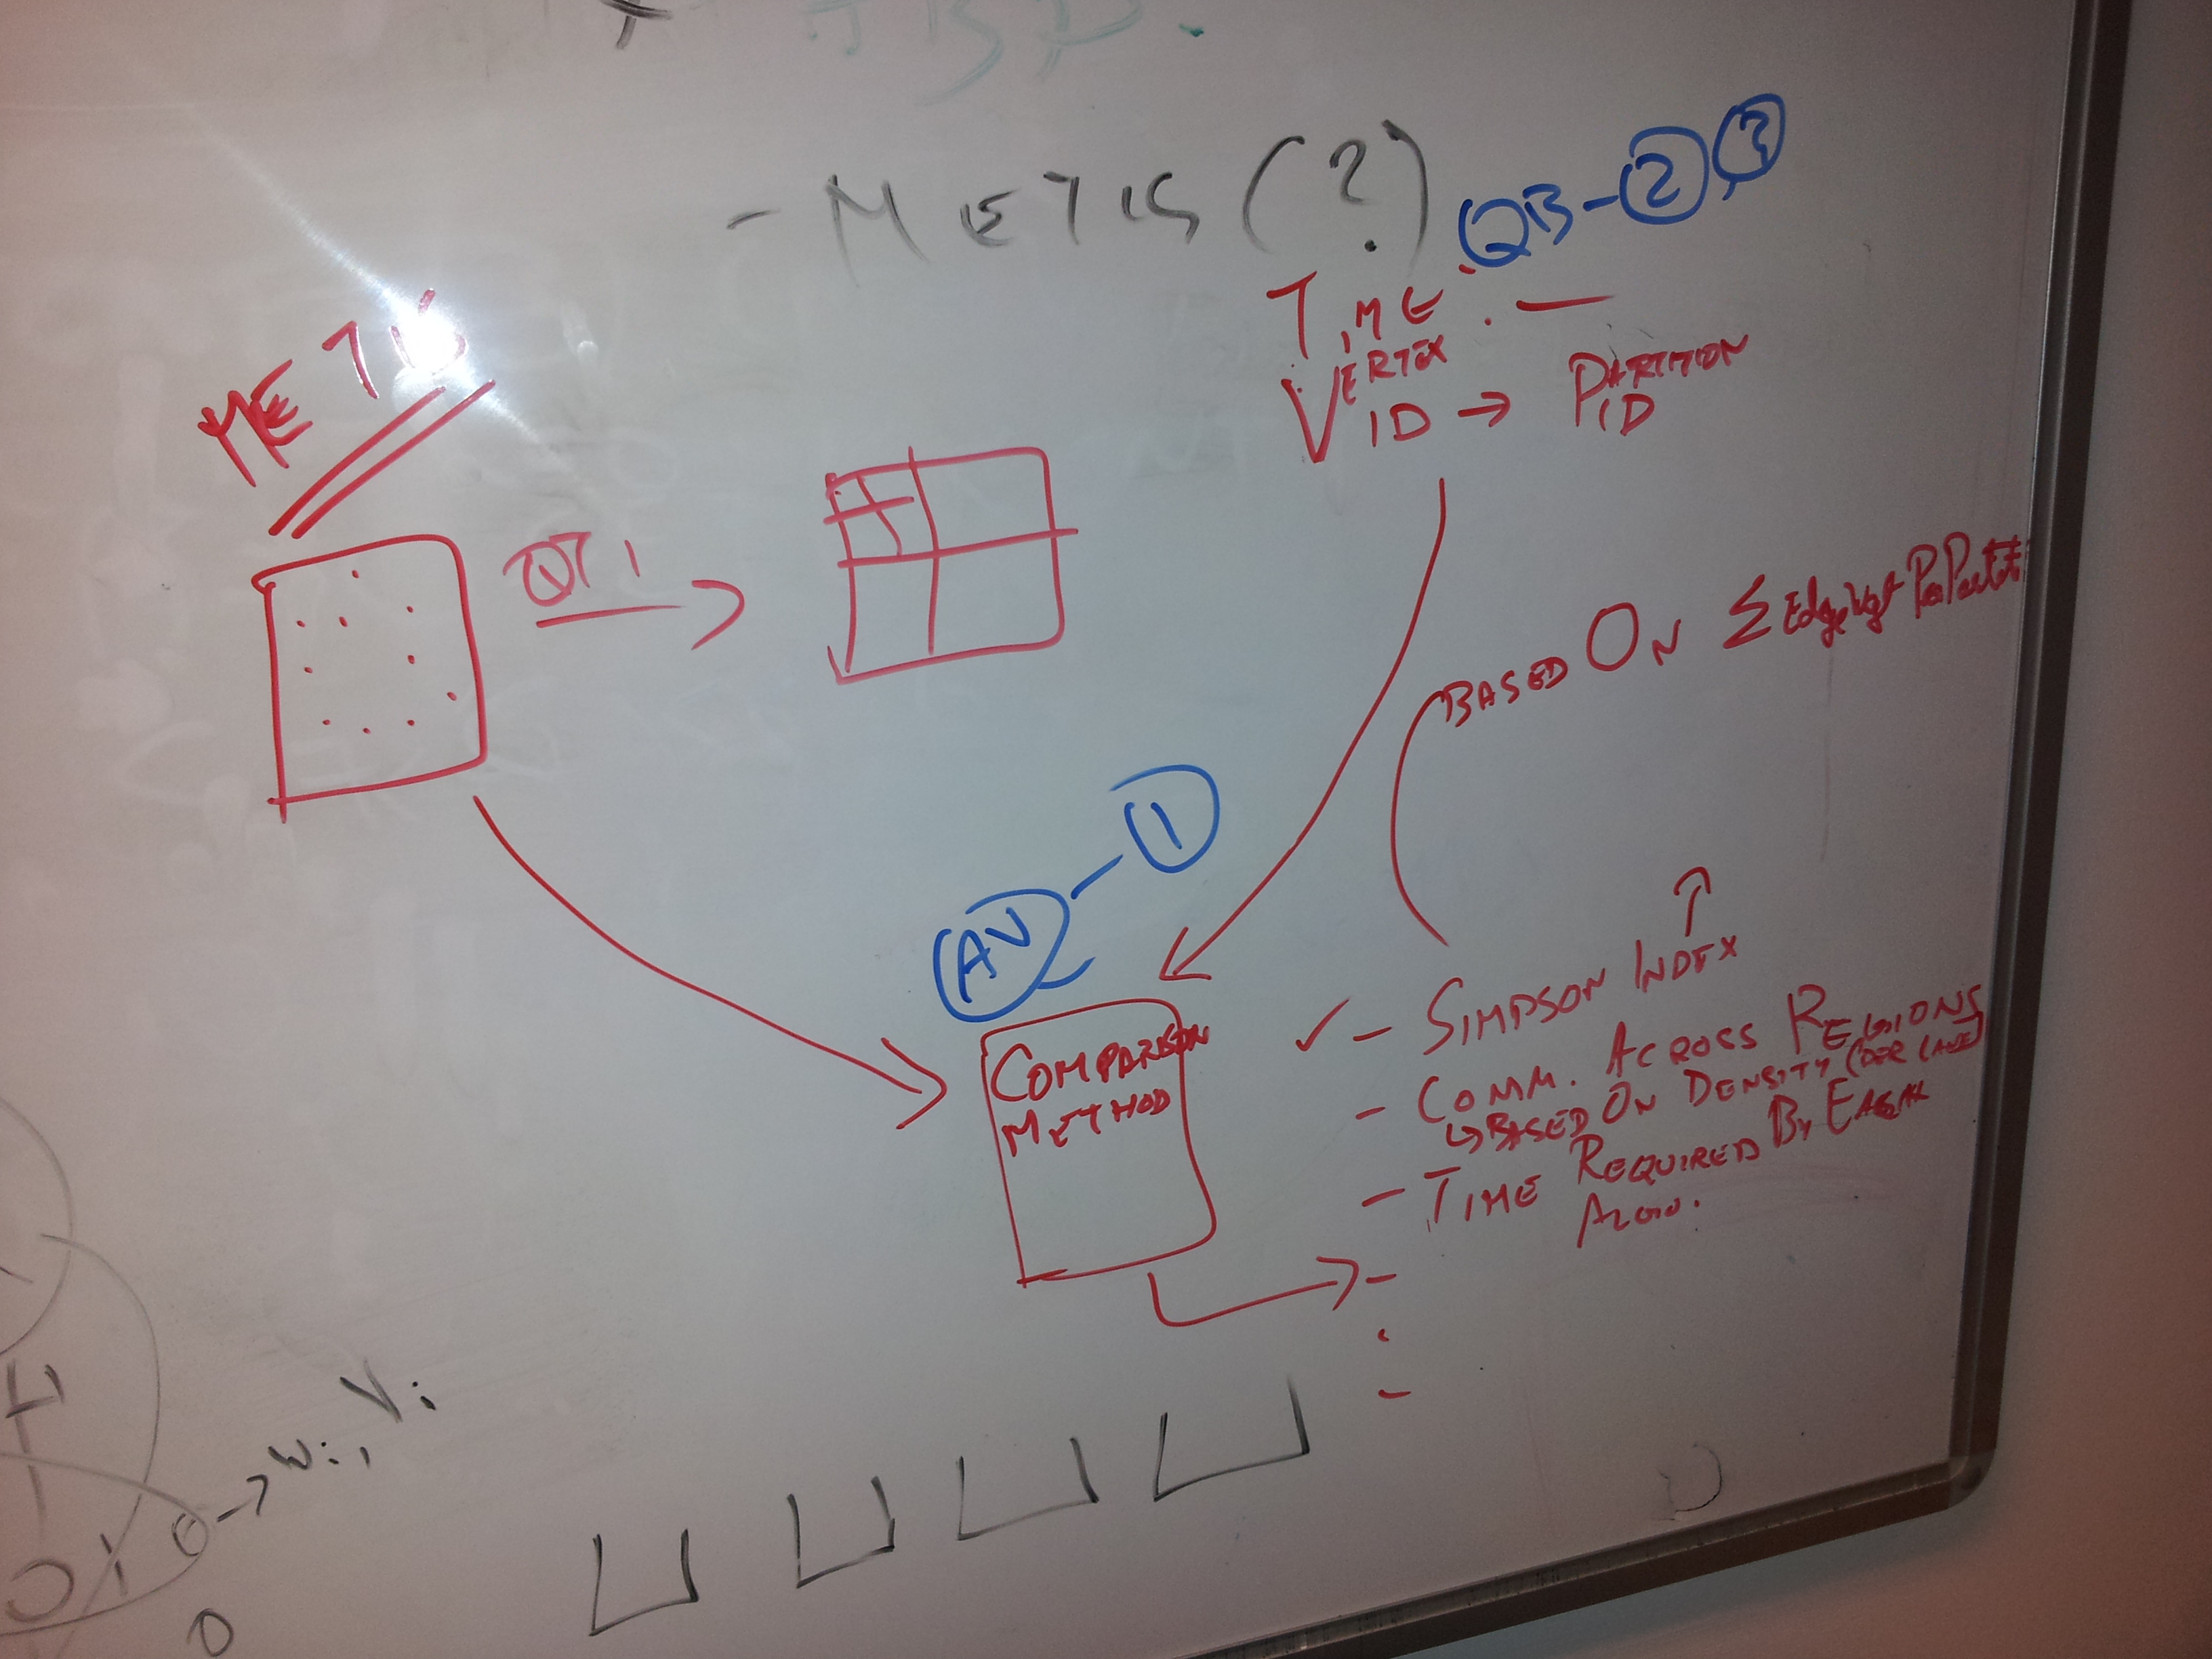 - METIS (?)
QB - 2 ?
TIME : —
VERTEX ID → PARTITION ID
METIS
QT 1
BASED ON Σ Edge Wgt Per
AV - 1
COMPARISON
METHOD
✓ - SIMPSON INDEX ↑
- COMM. ACROSS REGIONS
↳ BASED ON DENSITY (PER LANE)
- TIME REQUIRED BY
ALGO.
→ Wi, Vi